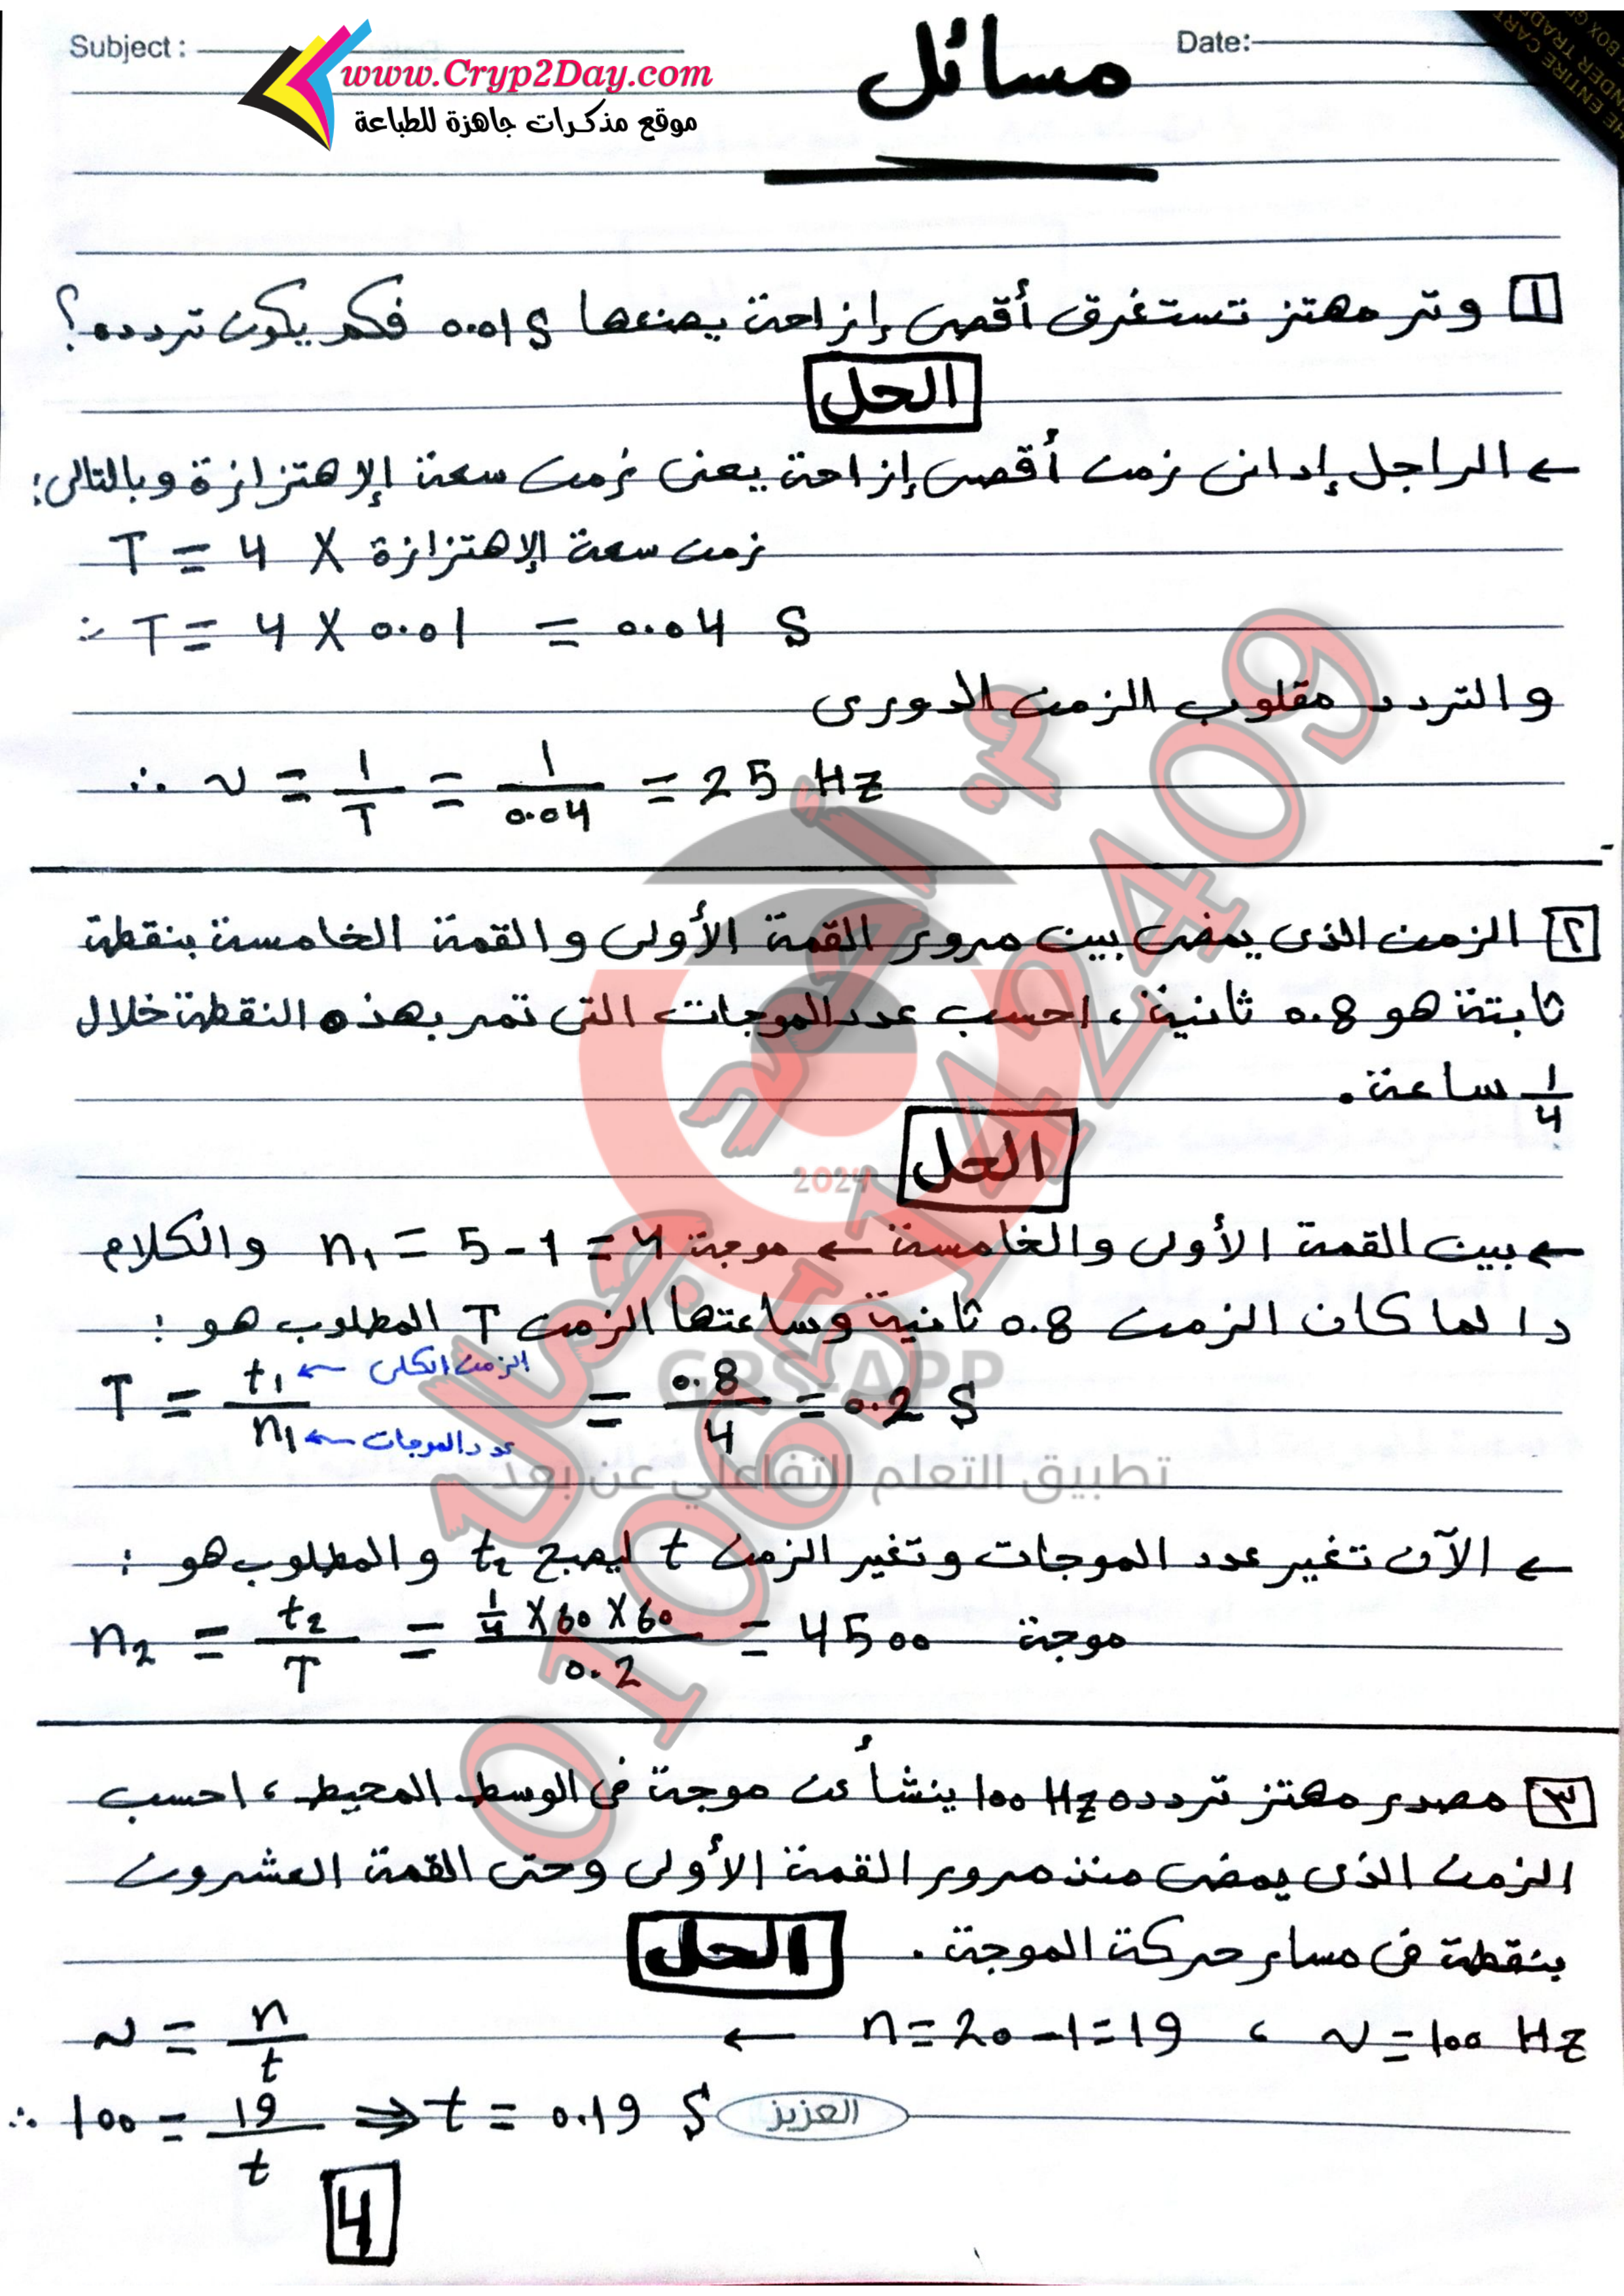 Subject :
Date:
www.Cryp2Day.com
موقع مذكرات جاهزة للطباعة
مسائل
1 وتر مهتز تستغرق أقصى إزاحة يصنعها 0.01 S فكم يكون تردده؟
الحل
← الراجل إدانى زمن أقصى إزاحة يعنى زمن سعة الإهتزازة وبالتالى:
T = 4 X زمن سعة الإهتزازة
∴ T = 4 X 0.01 = 0.04 S
والتردد مقلوب الزمن الدورى
∴ ν = 1/T = 1/0.04 = 25 Hz
٢ الزمن الذى يمضى بين مرور القمة الأولى والقمة الخامسة بنقطة
ثابتة هو 0.8 ثانية ، احسب عدد الموجات التى تمر بهذه النقطة خلال
1/4 ساعة .
الحل
← بين القمة الأولى والخامسة ← موجة n1 = 5 - 1 = 4 والكلام
دا لما كان الزمن 0.8 ثانية وساعتها الزمن T المطلوب هو :
T = t1/n1 = 0.8/4 = 0.2 S
الزمن الكلى
عدد الموجات
← الآن تغير عدد الموجات وتغير الزمن t ليصبح t2 والمطلوب هو :
n2 = t2/T = 1/4 X 60 X 60/0.2 = 4500 موجة
٣ مصدر مهتز تردده 100 Hz ينشأ عن موجة فى الوسط المحيط ، احسب
الزمن الذى يمضى منذ مرور القمة الأولى وحتى القمة العشرون
بنقطة فى مسار حركة الموجة .
الحل
ν = n/t ← n = 20 - 1 = 19 ، ν = 100 Hz
∴ 100 = 19/t ⇒ t = 0.19 S
العزيز
4
م. أحمد جمال
01065142409
2024
GPS-APP
تطبيق التعلم التفاعلي عن بعد